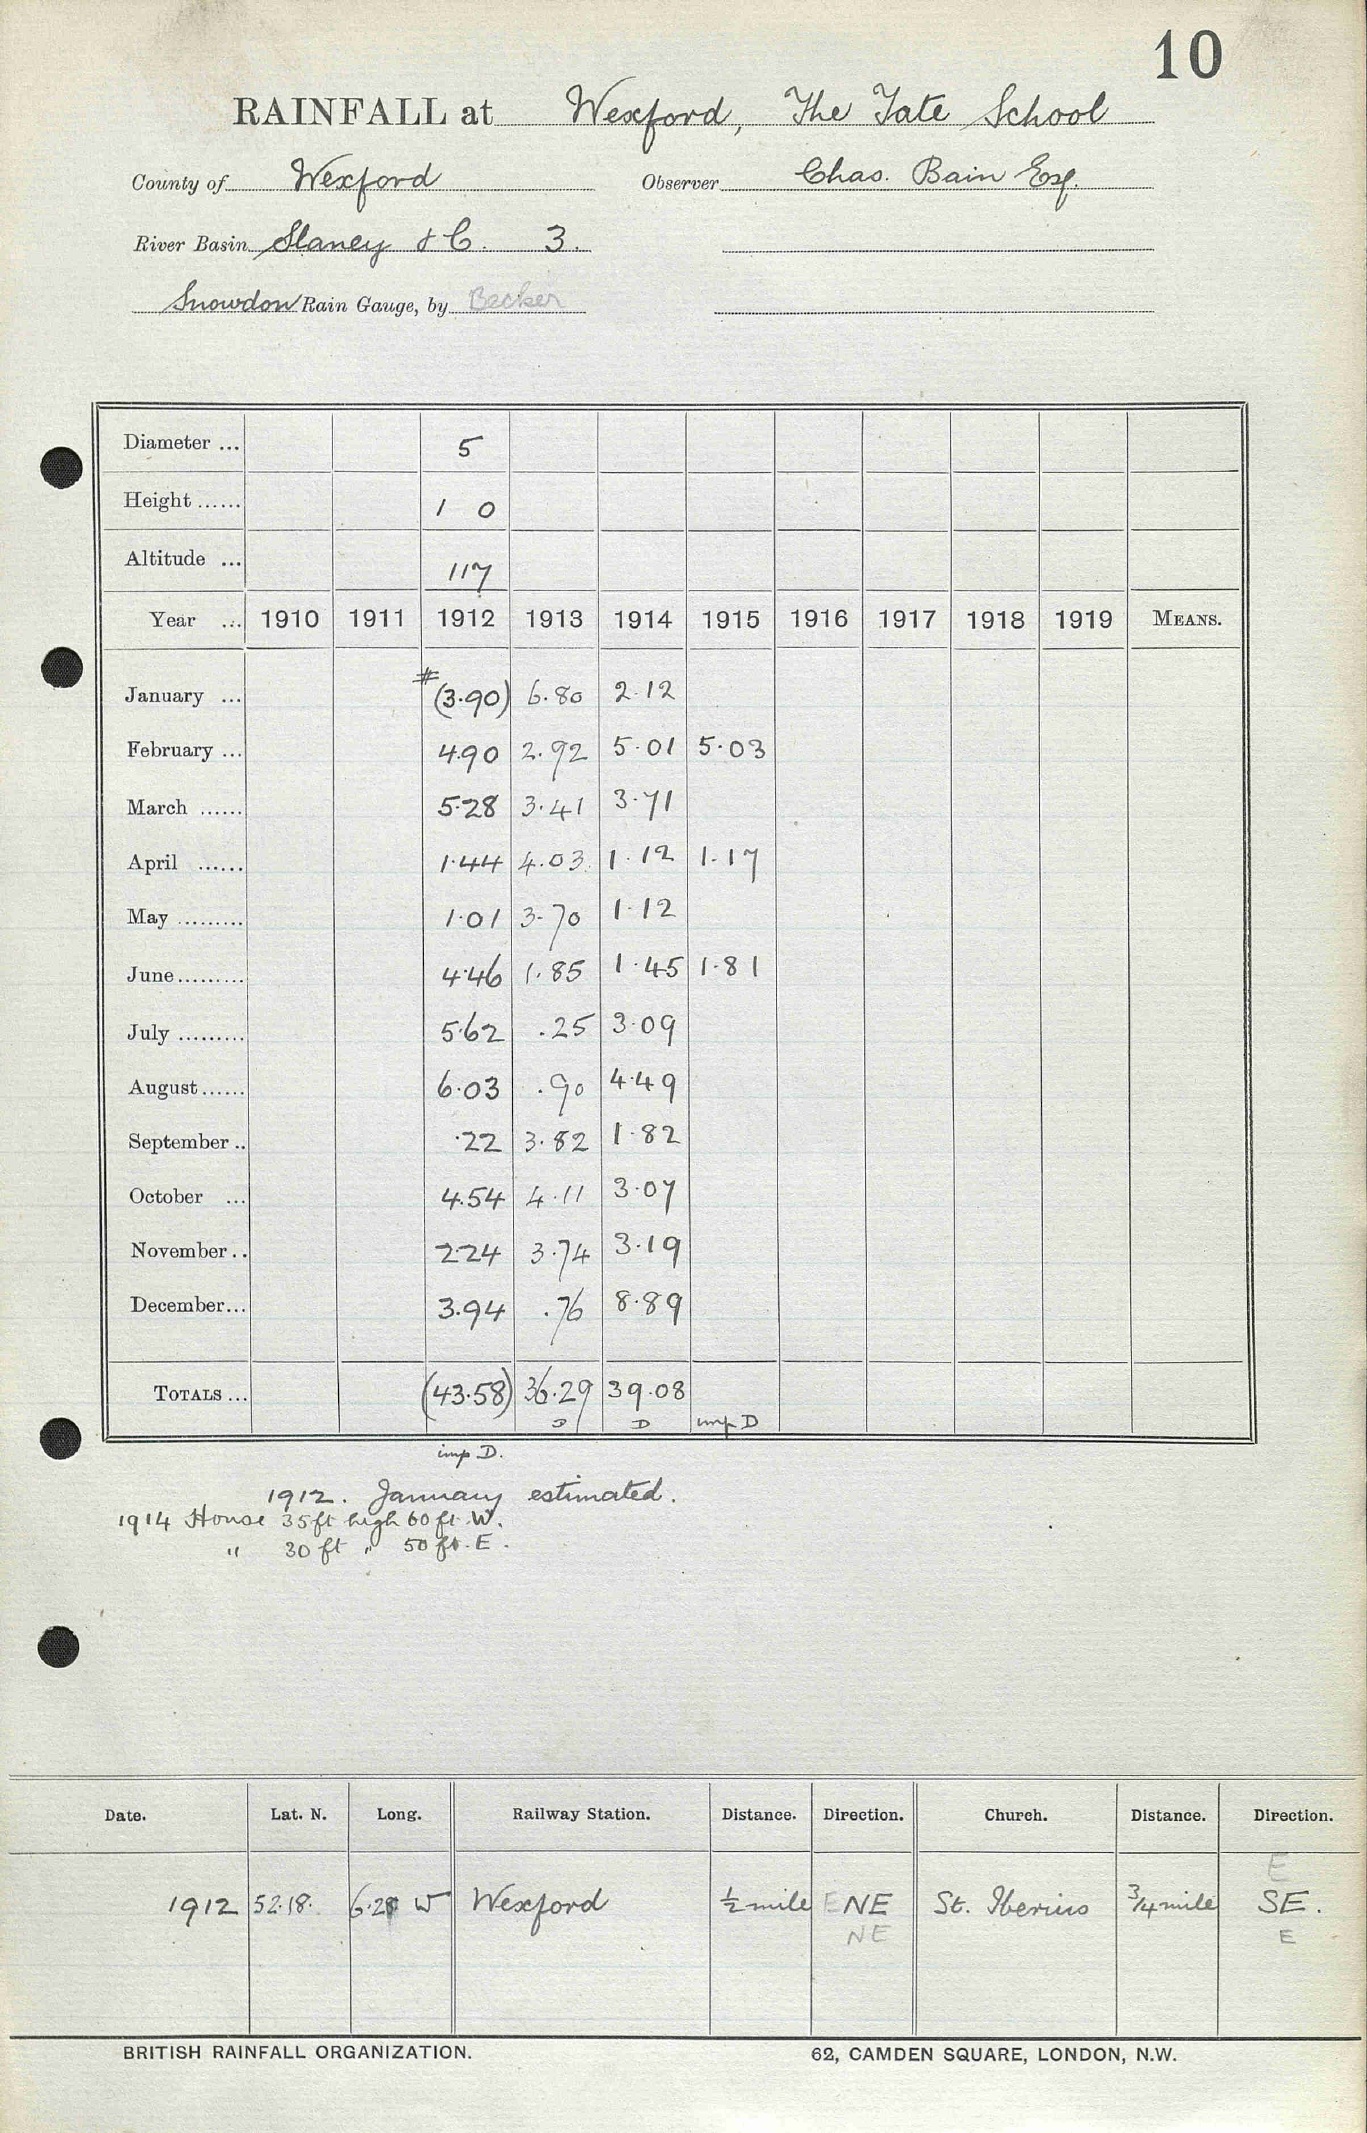 10
RAINFALL at Wexford, The Tate School
County of Wexford Observer Chas. Bain Esq.
River Basin Slaney & C. 3.
Snowdon Rain Gauge, by Becker
Diameter ... 5
Height ...... 1 0
Altitude ... 117
Year ... 1910 1911 1912 1913 1914 1915 1916 1917 1918 1919 MEANS.
January ... #(3.90) 6.80 2.12
February ... 4.90 2.92 5.01 5.03
March ...... 5.28 3.41 3.71
April ...... 1.44 4.03 1.12 1.17
May ......... 1.01 3.70 1.12
June ......... 4.46 1.85 1.45 1.81
July ......... 5.62 .25 3.09
August ...... 6.03 .90 4.49
September .. .22 3.82 1.82
October ... 4.54 4.11 3.07
November .. 2.24 3.74 3.19
December ... 3.94 .76 8.89
TOTALS ... (43.58) 36.29 39.08
D D imp D
imp D.
1912. January estimated.
1914 House 35ft high 60ft W.
" 30ft " 50ft. E.
Date. Lat. N. Long. Railway Station. Distance. Direction. Church. Distance. Direction.
E
1912 52.18. 6.28 W Wexford ½ mile ENE St. Iberius ¾ mile SE.
NE E
BRITISH RAINFALL ORGANIZATION. 62, CAMDEN SQUARE, LONDON, N.W.